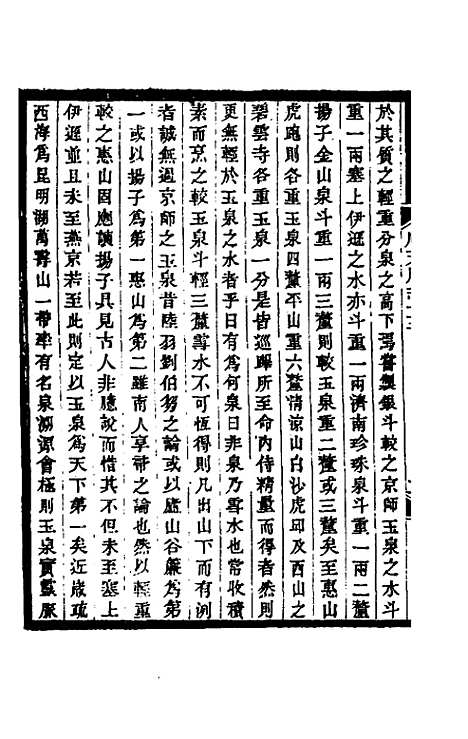 於其質之輕重分泉之高下焉嘗製銀斗較之京師玉泉之水斗
重一兩塞上伊遜之水亦斗重一兩濟南珍珠泉斗重一兩二釐
揚子金山泉斗重一兩三釐則較玉泉重二釐或三釐矣至惠山
虎跑則各重玉泉四釐平山重六釐清涼山白沙虎邱及西山之
碧雲寺各重玉泉一分是皆巡蹕所至命內侍精量而得者然則
更無輕於玉泉之水者乎曰有爲何泉曰非泉乃雪水也當收積
素而烹之較玉泉斗輕三釐雪水不可恆得則凡出山下而有冽
者誠無過京師之玉泉昔陸羽劉伯芻之論或以廬山谷簾爲第
一或以揚子爲第一惠山爲第二雖南人享帚之論也然以輕重
較之惠山固應讓揚子具見古人非臆說而惜其不但未至塞上
伊遜並且未至燕京若至此則定以玉泉爲天下第一矣近歲疏
西海爲昆明湖萬壽山一帶率有名泉溯源會極則玉泉實靈脈